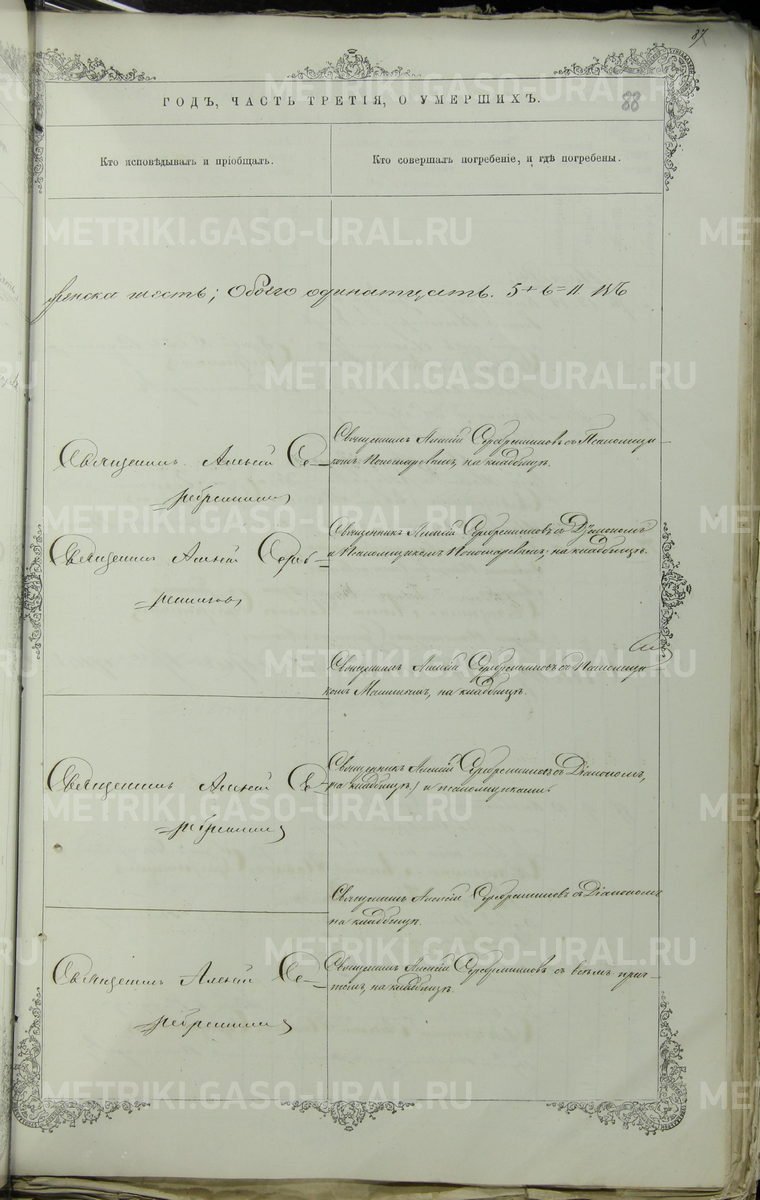 87
88
ГОДЪ, ЧАСТЬ ТРЕТІЯ, О УМЕРШИХЪ.
Кто исповѣдывалъ и пріобщалъ.
Кто совершалъ погребеніе, и гдѣ погребены.
женска шесть; обоего одинатцать. 5 + 6 = 11.
Священникъ Алексѣй Се-
ребренниковъ
Священникъ Алексѣй Серебренниковъ съ Псаломщи-
комъ Пономаревымъ, на кладбищѣ.
Священникъ Алексѣй Сереб-
ренниковъ
Священникъ Алексѣй Серебренниковъ съ Діакономъ
и Псаломщикомъ Пономаревымъ, на кладбищѣ.
Священникъ Алексѣй Серебренниковъ съ Псаломщи-
комъ на кладбищѣ.
Священникъ Алексѣй Се-
ребренниковъ
Священникъ Алексѣй Серебренниковъ съ Діакономъ,
на кладбищѣ) и псаломщиками.
Священникъ Алексѣй Серебренниковъ съ Діакономъ
на кладбищѣ.
Священникъ Алексѣй Се-
ребренниковъ
Священникъ Алексѣй Серебренниковъ съ всѣмъ прич-
томъ, на кладбищѣ.
METRIKI.GASO-URAL.RU